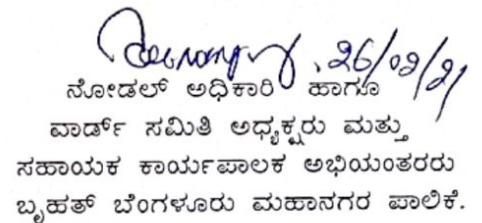 26/02/21
ನೋಡಲ್ ಅಧಿಕಾರಿ ಹಾಗೂ
ವಾರ್ಡ್ ಸಮಿತಿ ಅಧ್ಯಕ್ಷರು ಮತ್ತು
ಸಹಾಯಕ ಕಾರ್ಯಪಾಲಕ ಅಭಿಯಂತರರು
ಬೃಹತ್ ಬೆಂಗಳೂರು ಮಹಾನಗರ ಪಾಲಿಕೆ.